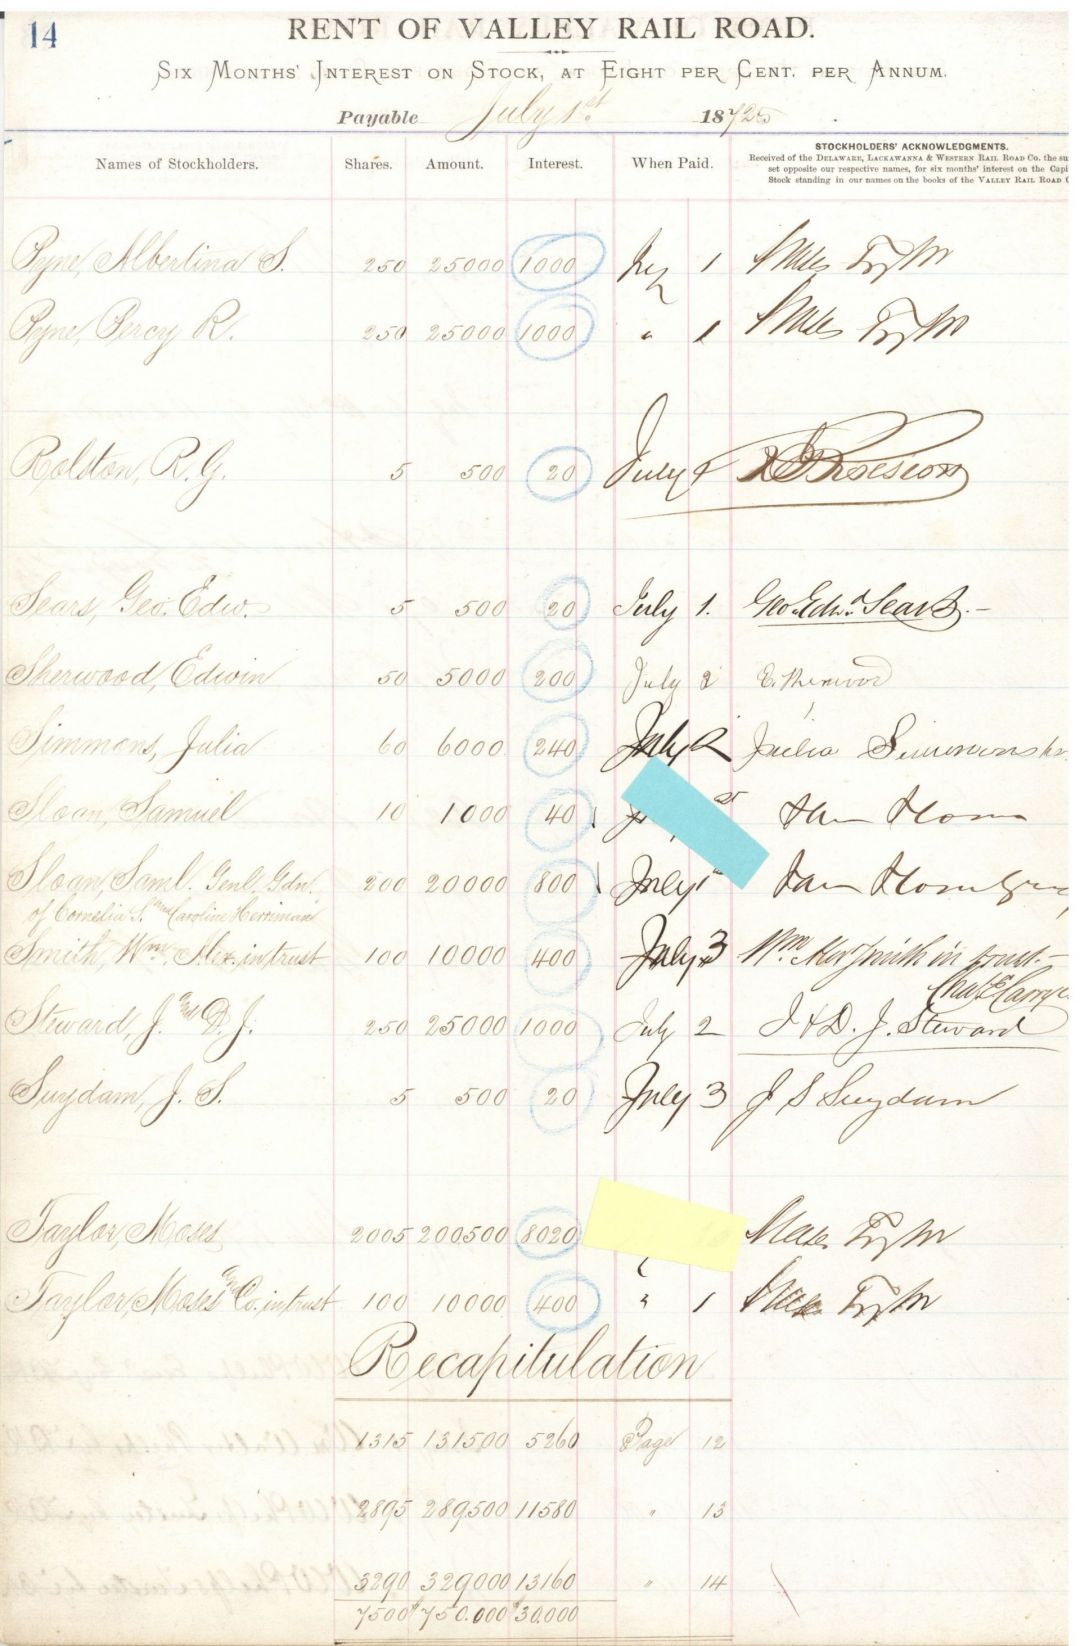 14
RENT OF VALLEY RAIL ROAD.
SIX MONTHS' INTEREST ON STOCK, AT EIGHT PER CENT. PER ANNUM.
Payable July 1st 187
Names of Stockholders. Shares. Amount. Interest. When Paid. STOCKHOLDERS' ACKNOWLEDGMENTS.
Received of the DELAWARE, LACKAWANNA & WESTERN RAIL ROAD Co. the su
set opposite our respective names, for six months' interest on the Capi
Stock standing in our names on the books of the VALLEY RAIL ROAD C
Pyne, Albertina S. 250 25000 1000 1
Pyne, Percy R. 250 25000 1000 " 1
Rolston, R. G. 5 500 20 July
Sears, Geo. Edw. 5 500 20 July 1. Geo. Edwd. Sears.
Sherwood, Edwin 50 5000 200 July 2 E. Sherwood
Simmons, Julia 60 6000 240 July 2 Julia Simmons
Sloan, Samuel 10 1000 40 Sam Sloan
Sloan, Saml. Genl. Gdn. 200 20000 800 July 1st Sam Sloan
of Cornelia S. and Caroline Herriman
Smith, Wm. Alex. in trust 100 10000 400 July 3 Wm. Alex Smith in trust.
Steward, J. and D. J. 250 25000 1000 July 2 J & D. J. Steward
Suydam, J. S. 5 500 20 July 3 J S Suydam
Taylor, Moses 2005 200500 8020 Moses Taylor
Taylor, Moses and Co. in trust 100 10000 400 " 1
Recapitulation
1315 131500 5260 Page 12
2895 289500 11580 " 13
3290 329000 13160 " 14
7500 $750.000 $30.000